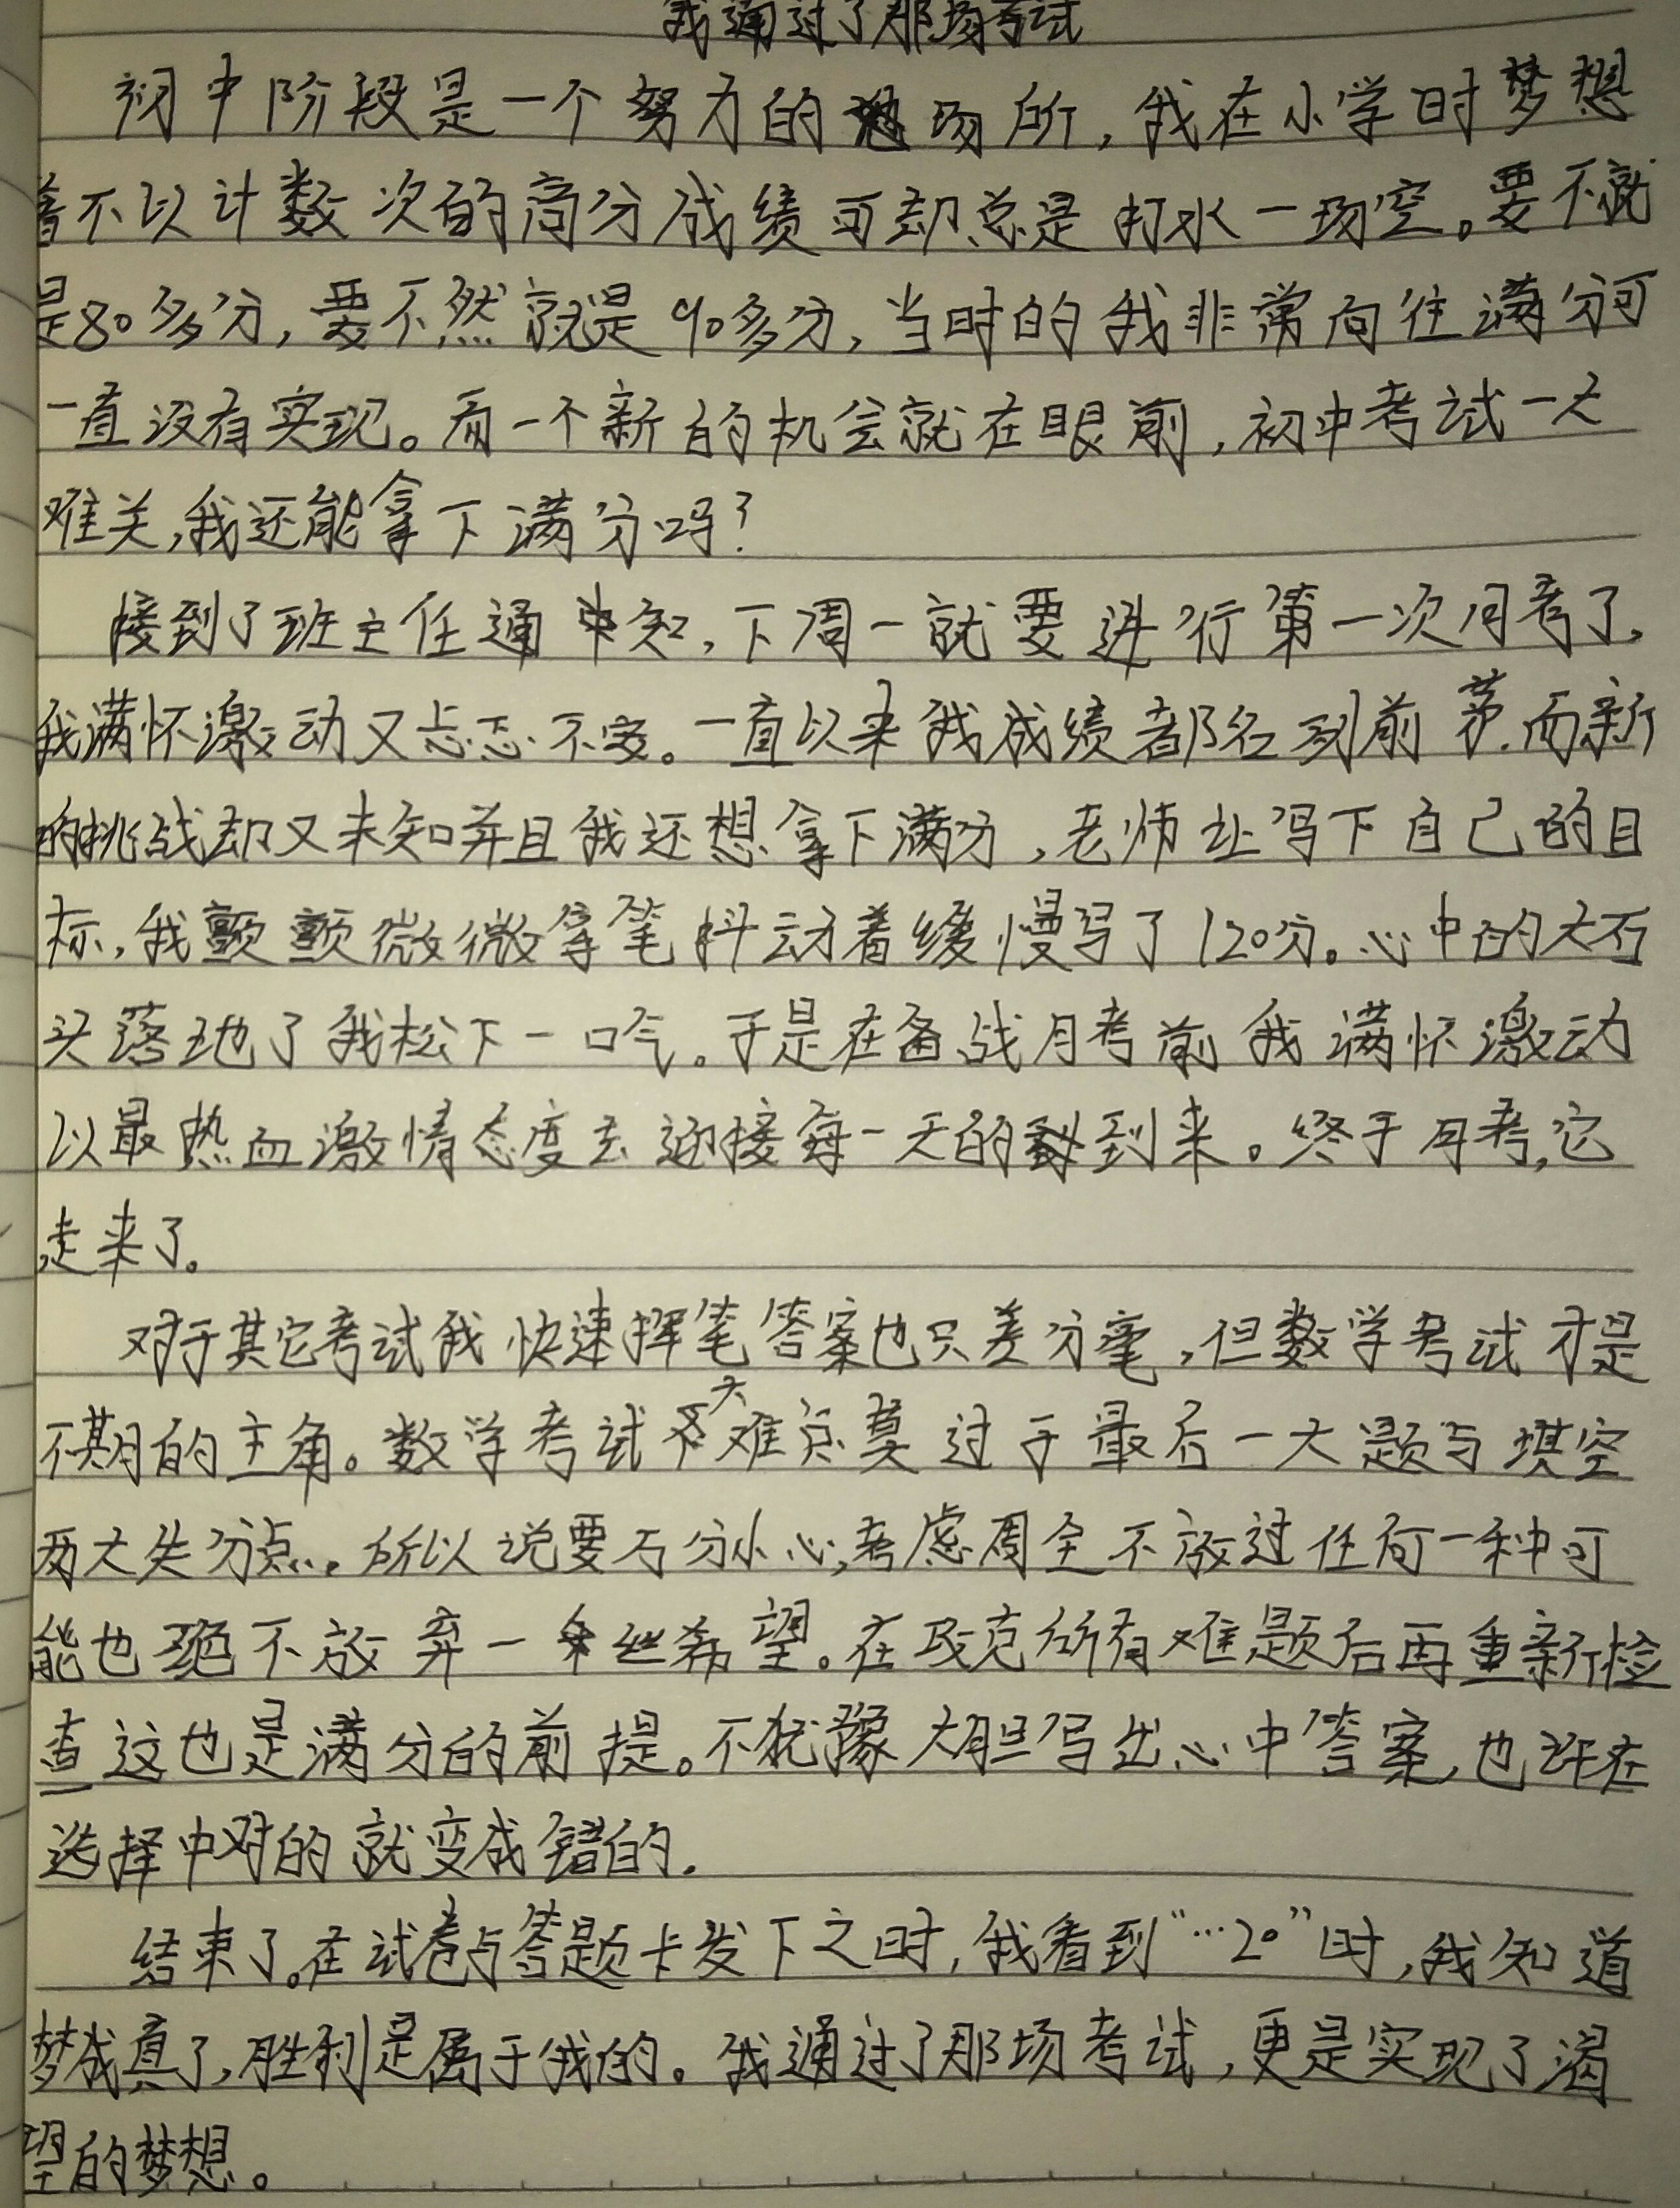 我通过了那场考试
初中阶段是一个努力的场所,我在小学时梦想
着不以计数次的高分成绩可却总是打水一场空。要不就
是80多分,要不然就是90多分,当时的我非常向往满分可
一直没有实现。而一个新的机会就在眼前,初中考试一大
难关,我还能拿下满分吗?
接到了班主任通知,下周一就要进行第一次月考了,
我满怀激动又忐忑不安。一直以来我成绩都名列前茅.而新
的挑战却又未知并且我还想拿下满分,老师让写下自己的目
标,我颤颤微微拿笔抖动着缓慢写了120分。心中的大石
头落地了我松下一口气。于是在备战月考前我满怀激动
以最热血激情态度去迎接每一天的到来。终于月考,它
走来了。
对于其它考试我快速挥笔答案也只差分毫,但数学考试才是
不期的主角。数学考试大难点莫过于最后一大题与填空
两大失分点。所以说要万分小心,考虑周全不放过任何一种可
能也绝不放弃一丝希望。在攻克所有难题后再重新检
查这也是满分的前提。不犹豫大胆写出心中答案,也许在
选择中对的就变成错的.
结束了。在试卷与答题卡发下之时,我看到“…20”时,我知道
梦成真了,胜利是属于我的。我通过了那场考试,更是实现了渴
望的梦想。